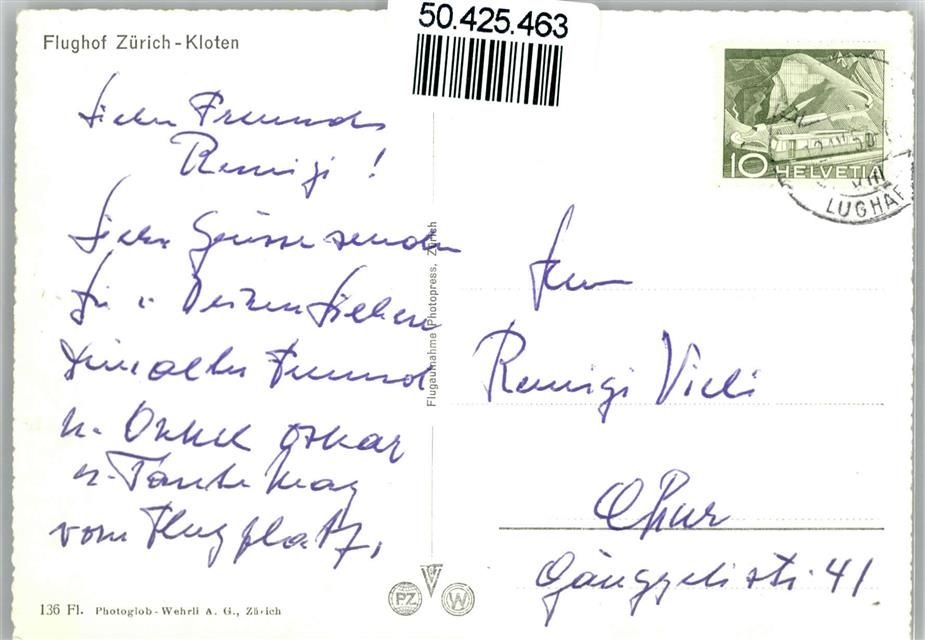 50.425.463
Flughof Zürich-Kloten
Lieber Freund
Remigi !
Liebe Grüsse senden
Dir u. Deinen Lieben
Dein alter Freund
u. Onkel Oskar
u. Tante May
vom Flugplatz,
Flugaufnahme Photopress, Zürich
10 HELVETIA
LUGHAF
Herrn
Remigi Vieli
Chur
Gäuggelistr. 41
136 Fl. Photoglob-Wehrli A. G., Zürich
PZ W